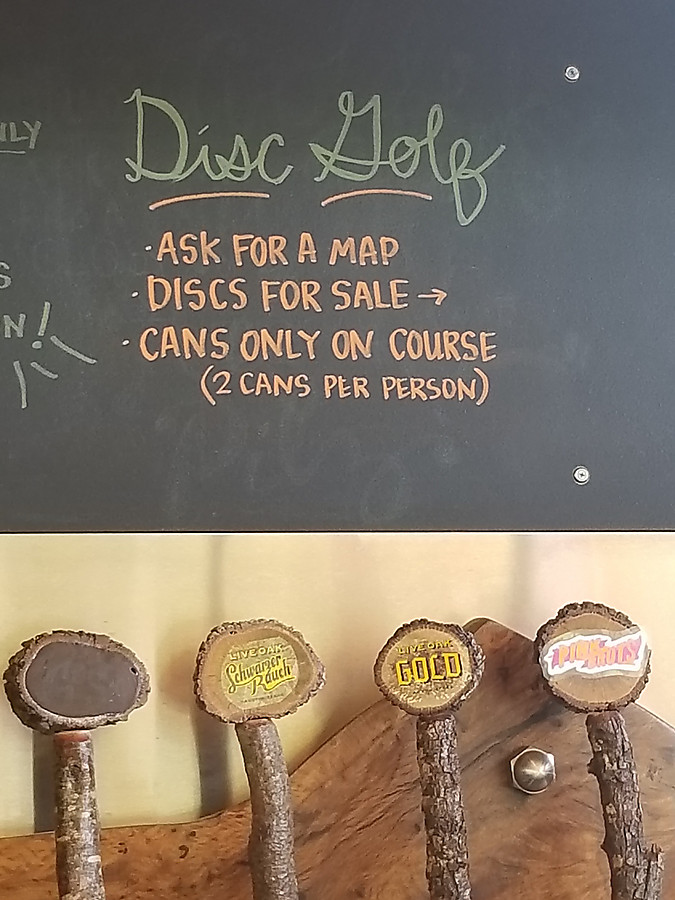 NLY
Disc Golf
· ASK FOR A MAP
· DISCS FOR SALE →
S
N!
· CANS ONLY ON COURSE
(2 CANS PER PERSON)
LIVE OAK
Schwarzer
Rauch
LIVE OAK
GOLD
PINK
BOOTS